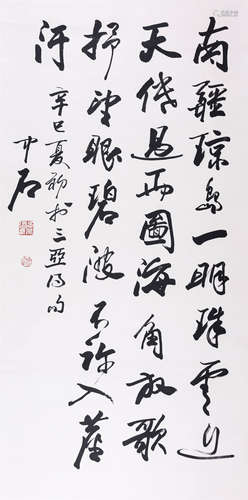 南疆琼島一明珠雲
天低過雨圖海角放歌
抒望眼碧波不許入塵
汙
辛巳夏初於三亞得句
中石